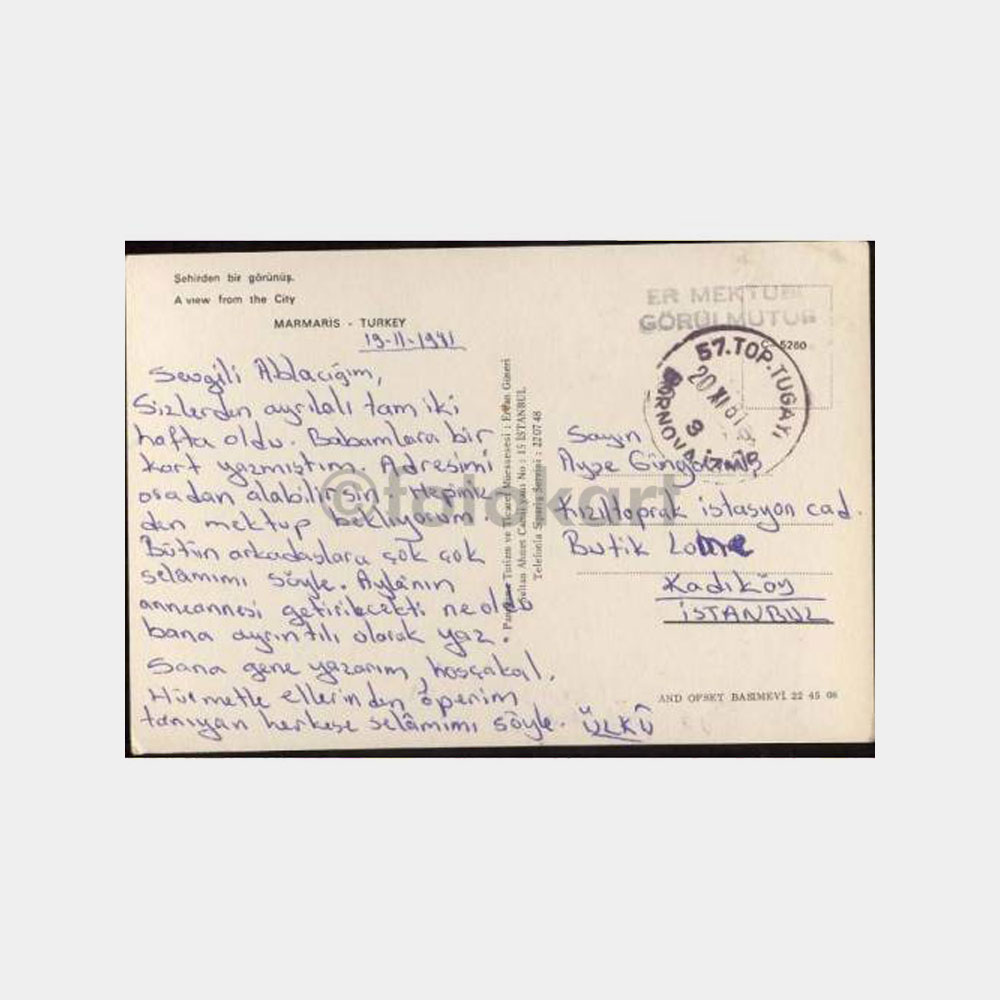 Şehirden bir görünüş.
A view from the City
MARMARİS - TURKEY
19-11-1981
Sevgili Ablacığım,
Sizlerden ayrılalı tam iki
hafta oldu. Babamlara bir
kart yazmıştım. Adresimi
oradan alabilirsin. Hepiniz
den mektup bekliyorum.
Bütün arkadaşlara çok çok
selâmımı söyle. Aylânın
anneannesi getirilecekti ne oldu
bana ayrıntılı olarak yaz.
Sana gene yazarım, hoşçakal.
Hürmetle ellerinden öperim
tanıyan herkese selâmımı söyle. ÜLKÜ
Turizm ve Ticaret Müessesesi :
Sultan Ahmet No : 15 İSTANBUL
Telefonla Sipariş Servisi : 22 07 48
ER MEKTUBU
GÖRÜLMÜTÜR
C- 5260
57.TOP.TUGAYI
20 XI 81
9
BORNOVA-İZMİR
Sayın
Ayşe
Kızıltoprak istasyon cad.
Butik
Kadıköy
İSTANBUL
AND OFSET BASIMEVİ 22 45 06
©fotokart